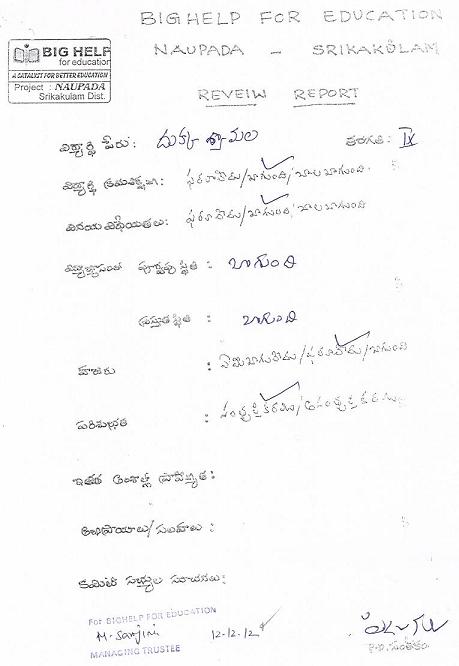 BIGHELP FOR EDUCATION
NAUPADA - SRIKAKULAM
BIG HELP
for education
A CATALYST FOR BETTER EDUCATION
Project : NAUPADA
Srikakulam Dist.
REVEIW REPORT
విద్యార్థి పేరు: దుక్క శ్యామల తరగతి: IX
విద్యార్థి క్రమశిక్షణ: ఫరవాలేదు/బాగుంది/చాల బాగుంది.
వినయ విధేయతలు: ఫరవాలేదు/బాగుంది/చాల బాగుంది
విద్యాభ్యాసంలో పూర్వపు స్థితి : బాగుంది
ప్రస్తుత స్థితి : బాగుంది
హాజరు : ఏమిబాగులేదు/ఫరవాలేదు/బాగుంది
పరిశుభ్రత : సంతృప్తికరము/అసంతృప్తికరము
ఇతర అంశాల్లో ప్రావీణ్యత:
అభిప్రాయాలు/సలహాలు :
కమిటీ సభ్యుల సూచనలు:
For BIGHELP FOR EDUCATION
12.12.12
MANAGING TRUSTEE
సంతకం